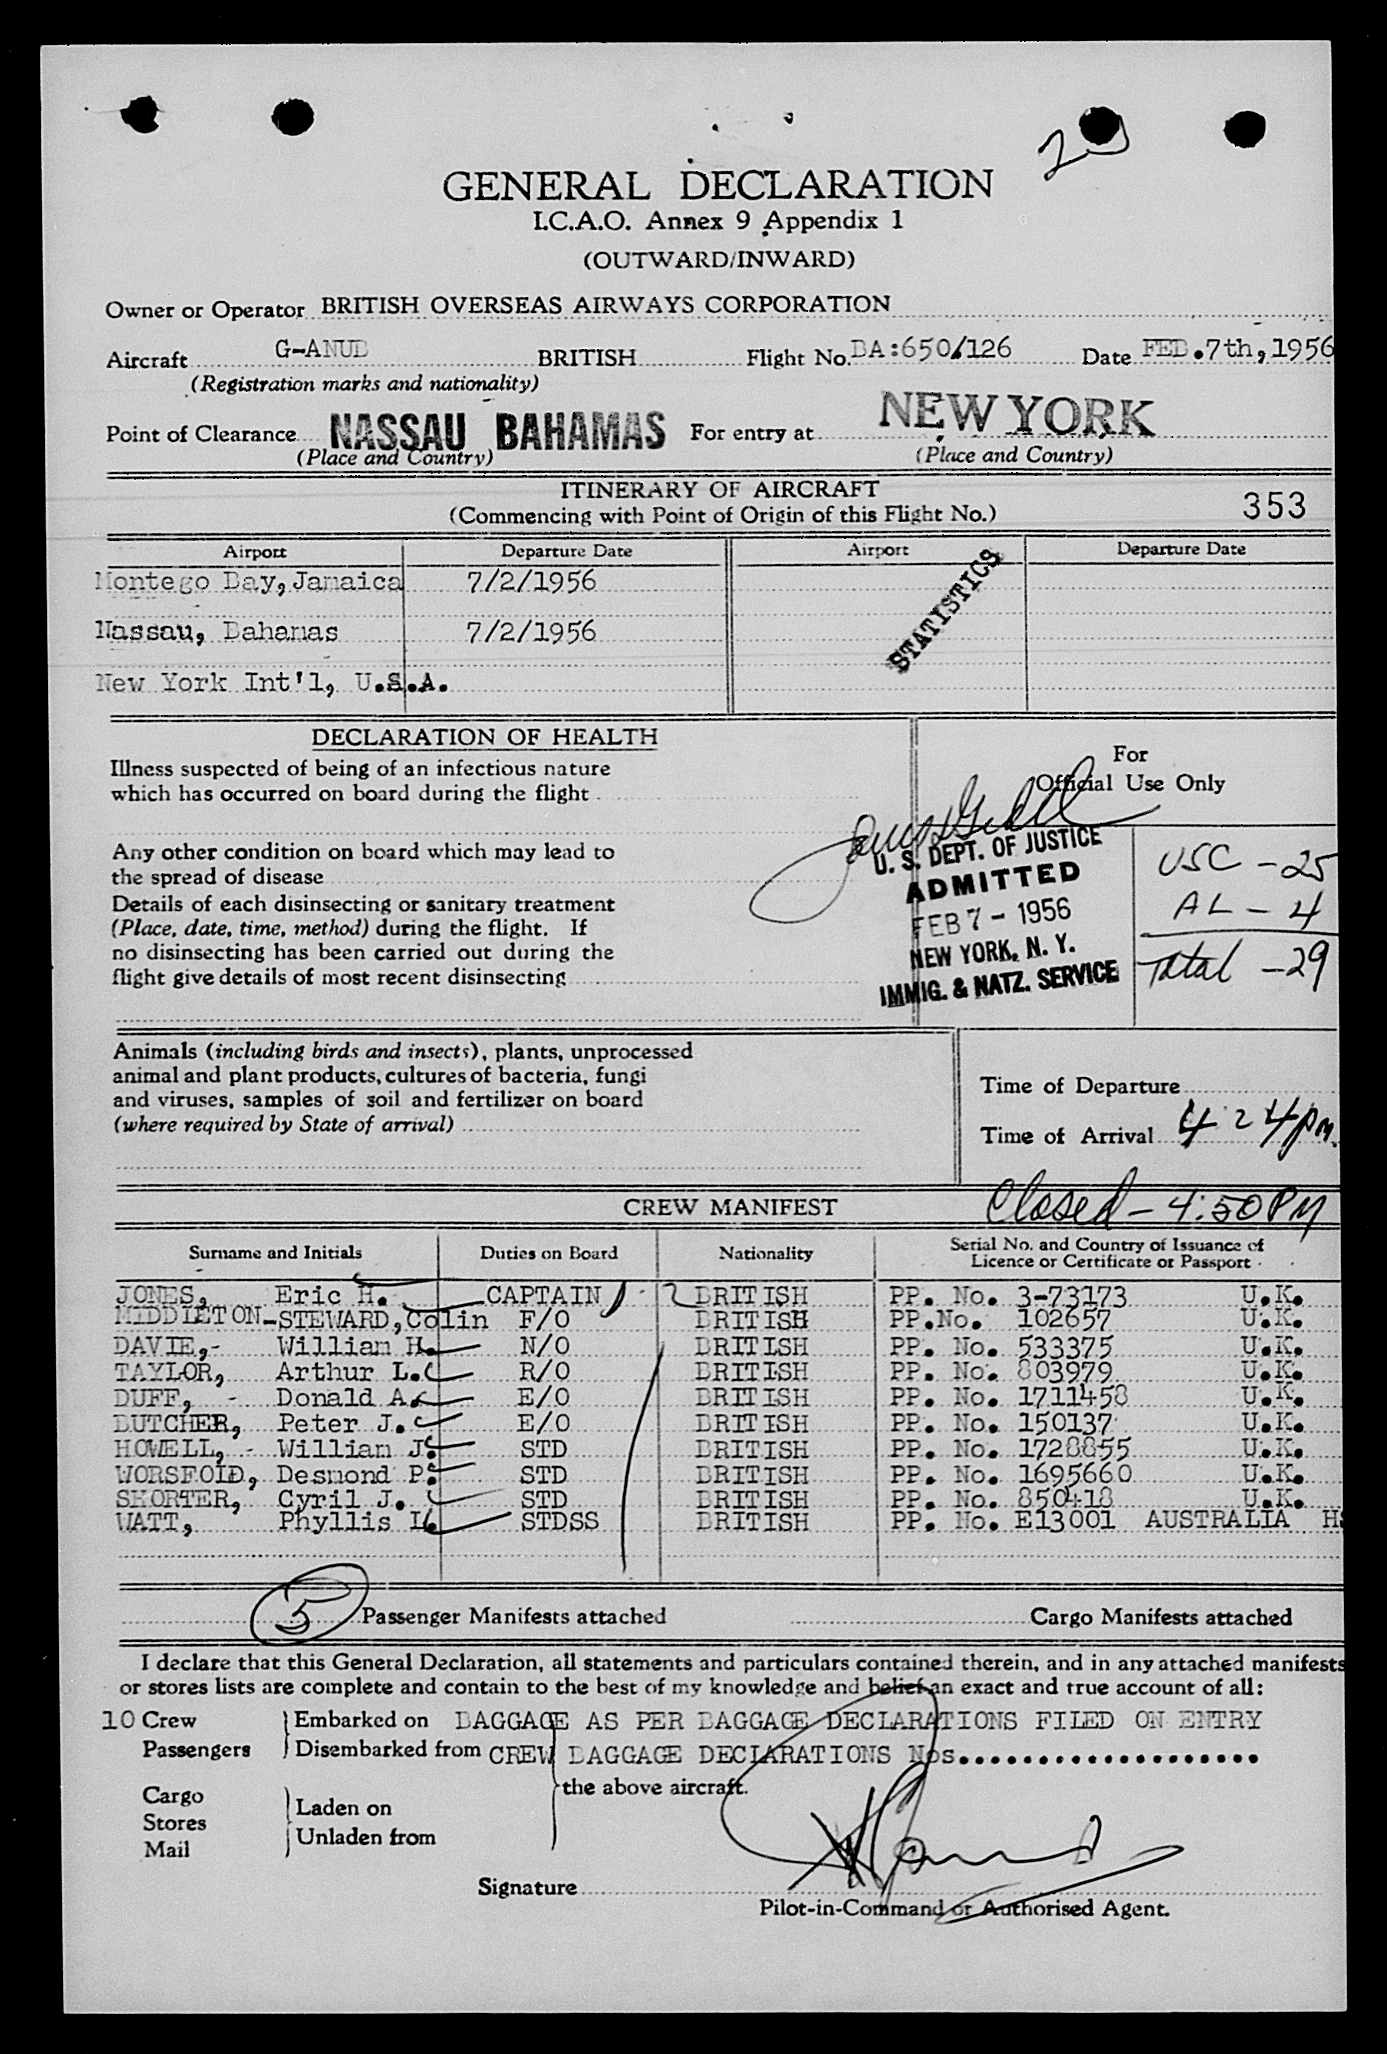 GENERAL DECLARATION
I.C.A.O. Annex 9 Appendix 1
(OUTWARD/INWARD)
Owner or Operator BRITISH OVERSEAS AIRWAYS CORPORATION
Aircraft G-ANUB BRITISH Flight No. BA:650/126 Date FEB.7th,1956
(Registration marks and nationality)
Point of Clearance NASSAU BAHAMAS For entry at NEW YORK
(Place and Country) (Place and Country)
ITINERARY OF AIRCRAFT
(Commencing with Point of Origin of this Flight No.) 353
Airport Departure Date Airport Departure Date
Montego Bay, Jamaica 7/2/1956
Nassau, Bahamas 7/2/1956
New York Int'l, U.S.A.
STATISTICS
DECLARATION OF HEALTH
Illness suspected of being of an infectious nature
which has occurred on board during the flight
Any other condition on board which may lead to
the spread of disease
Details of each disinsecting or sanitary treatment
(Place, date, time, method) during the flight. If
no disinsecting has been carried out during the
flight give details of most recent disinsecting
For
Official Use Only
U. S. DEPT. OF JUSTICE
ADMITTED
FEB 7 - 1956
NEW YORK, N. Y.
IMMIG. & NATZ. SERVICE
USC - 25
AL - 4
Total - 29
Animals (including birds and insects), plants, unprocessed
animal and plant products, cultures of bacteria, fungi
and viruses, samples of soil and fertilizer on board
(where required by State of arrival)
Time of Departure
Time of Arrival 4 24 pm.
Closed - 4:50 PM
CREW MANIFEST
Surname and Initials Duties on Board Nationality Serial No. and Country of Issuance of
Licence or Certificate or Passport
JONES, Eric H. CAPTAIN BRITISH PP. No. 3-73173 U.K.
MIDDLETON-STEWARD, Colin F/O BRITISH PP.No. 102657 U.K.
DAVIE,- William H. N/O BRITISH PP. No. 533375 U.K.
TAYLOR, Arthur L. R/O BRITISH PP. No. 803979 U.K.
DUFF, - Donald A. E/O BRITISH PP. No. 1711458 U.K.
BUTCHER, Peter J. E/O BRITISH PP. No. 150137 U.K.
HOWELL, - William J. STD BRITISH PP. No. 1728855 U.K.
WORSFOLD, Desmond P. STD BRITISH PP. No. 1695660 U.K.
SHORTER, Cyril J. STD BRITISH PP. No. 850418 U.K.
WATT, Phyllis STDSS BRITISH PP. No. E13001 AUSTRALIA
5 Passenger Manifests attached Cargo Manifests attached
I declare that this General Declaration, all statements and particulars contained therein, and in any attached manifests
or stores lists are complete and contain to the best of my knowledge and belief an exact and true account of all:
10 Crew Embarked on BAGGAGE AS PER BAGGAGE DECLARATIONS FILED ON ENTRY
Passengers Disembarked from CREW BAGGAGE DECLARATIONS Nos...................
the above aircraft.
Cargo
Stores
Mail
Laden on
Unladen from
Signature
Pilot-in-Command or Authorised Agent.